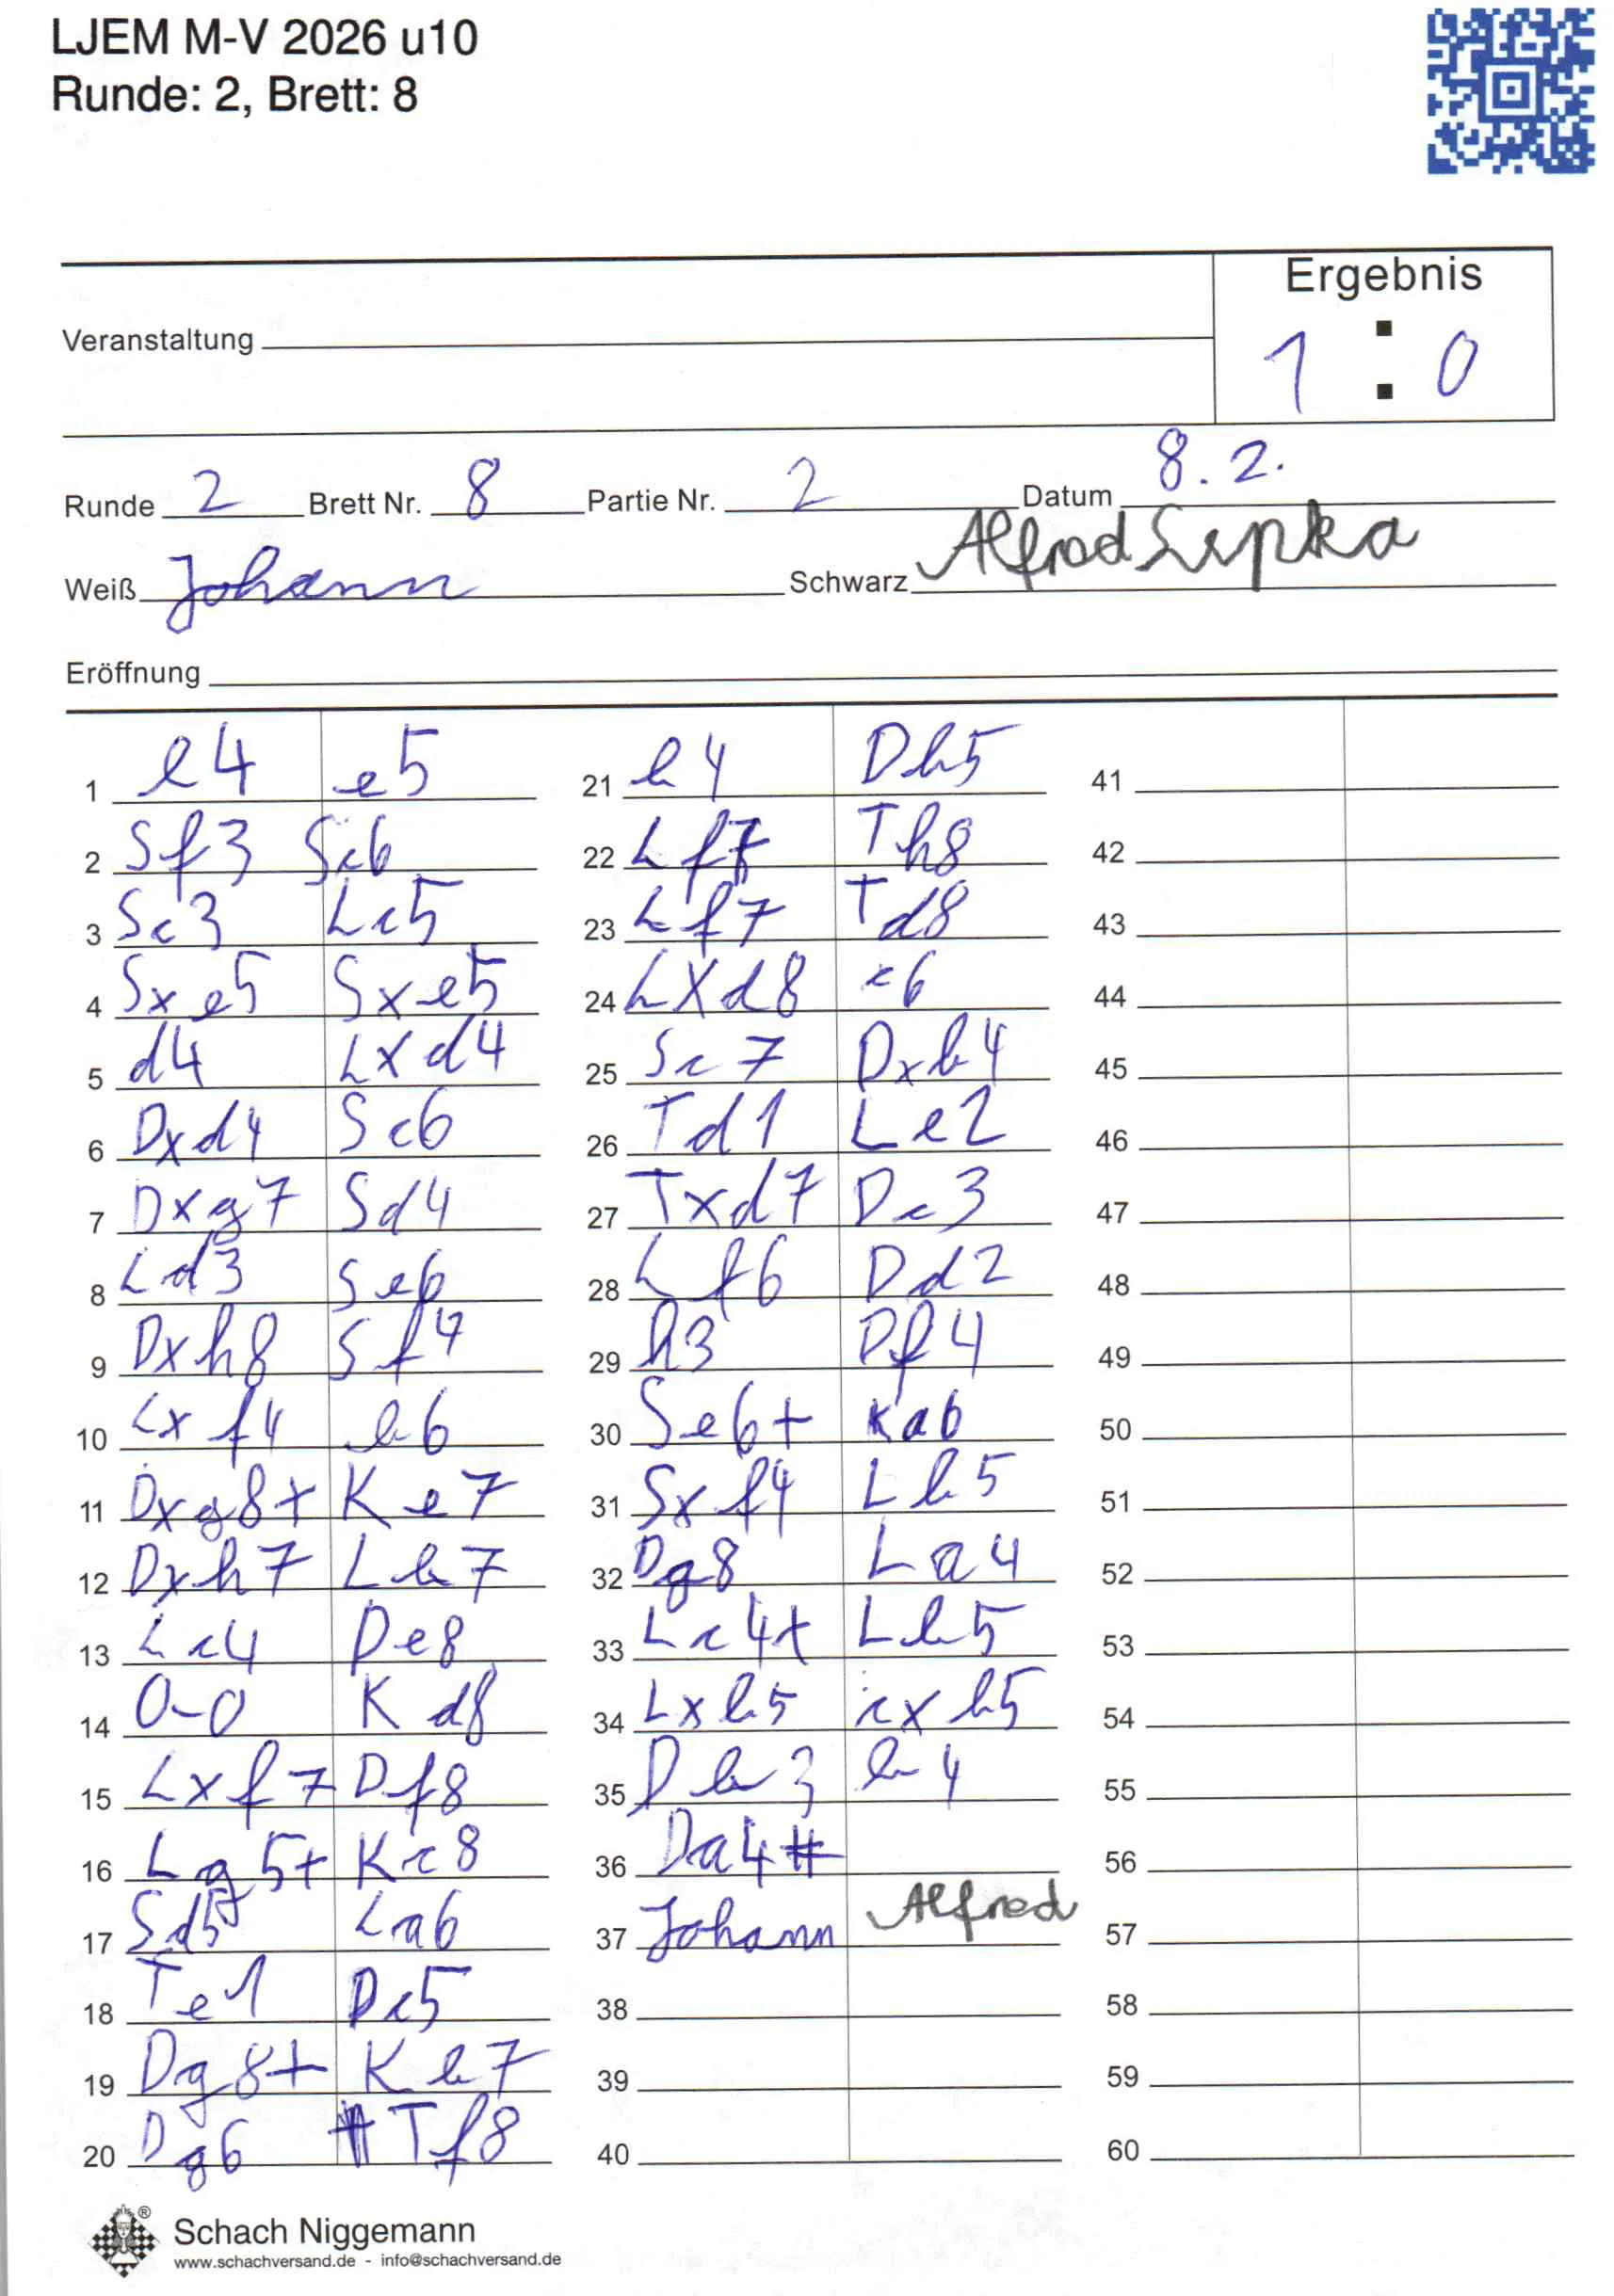 LJEM M-V 2026 u10
Runde: 2, Brett: 8
Ergebnis
Veranstaltung
1 : 0
Runde 2 Brett Nr. 8 Partie Nr. 2 Datum 8.2.
Weiß Johann Schwarz Alfred Lipka
Eröffnung
1 e4 e5
2 Sf3 Sc6
3 Sc3 Lc5
4 Sxe5 Sxe5
5 d4 Lxd4
6 Dxd4 Sc6
7 Dxg7 Sd4
8 Ld3 Se6
9 Dxh8 Sf4
10 Lxf4 b6
11 Dxg8+ Ke7
12 Dxh7 Lb7
13 Lc4 De8
14 0-0 Kd8
15 Lxf7 Df8
16 Lg5+ Kc8
17 Sd5 La6
18 Te1 Dc5
19 Dg8+ Kb7
20 Dg6 Tf8
21 b4 Db5
22 Lf7 Th8
23 Lf7 Td8
24 LXd8 c6
25 Sc7 Dxb4
26 Td1 Le2
27 Txd7 Dc3
28 Lf6 Dd2
29 h3 Df4
30 Se6+ Ka6
31 Sxf4 Lb5
32 Dg8 La4
33 Lc4+ Lb5
34 Lxb5 cxb5
35 Db3 b4
36 Da4#
37 Johann Alfred
38
39
40
41
42
43
44
45
46
47
48
49
50
51
52
53
54
55
56
57
58
59
60
®
Schach Niggemann
www.schachversand.de - info@schachversand.de